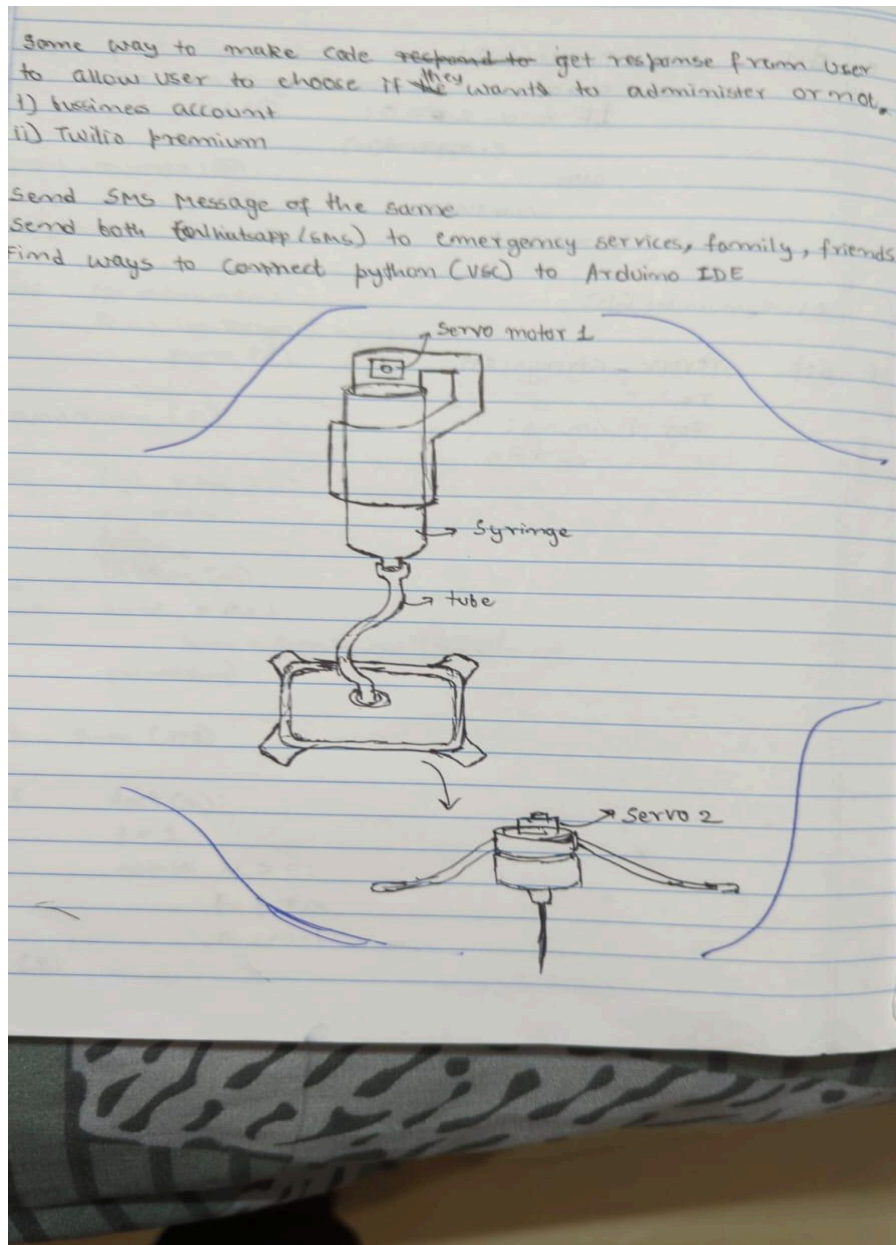 Some way to make code respond to get response from user
to allow user to choose if they wants to administer or not.
i) bussines account
ii) Twilio premium
Send SMS Message of the same
Send both (Whatsapp/sms) to emergency services, family, friends
Find ways to connect python (VSC) to Arduino IDE
Servo motor 1
Syringe
tube
Servo 2